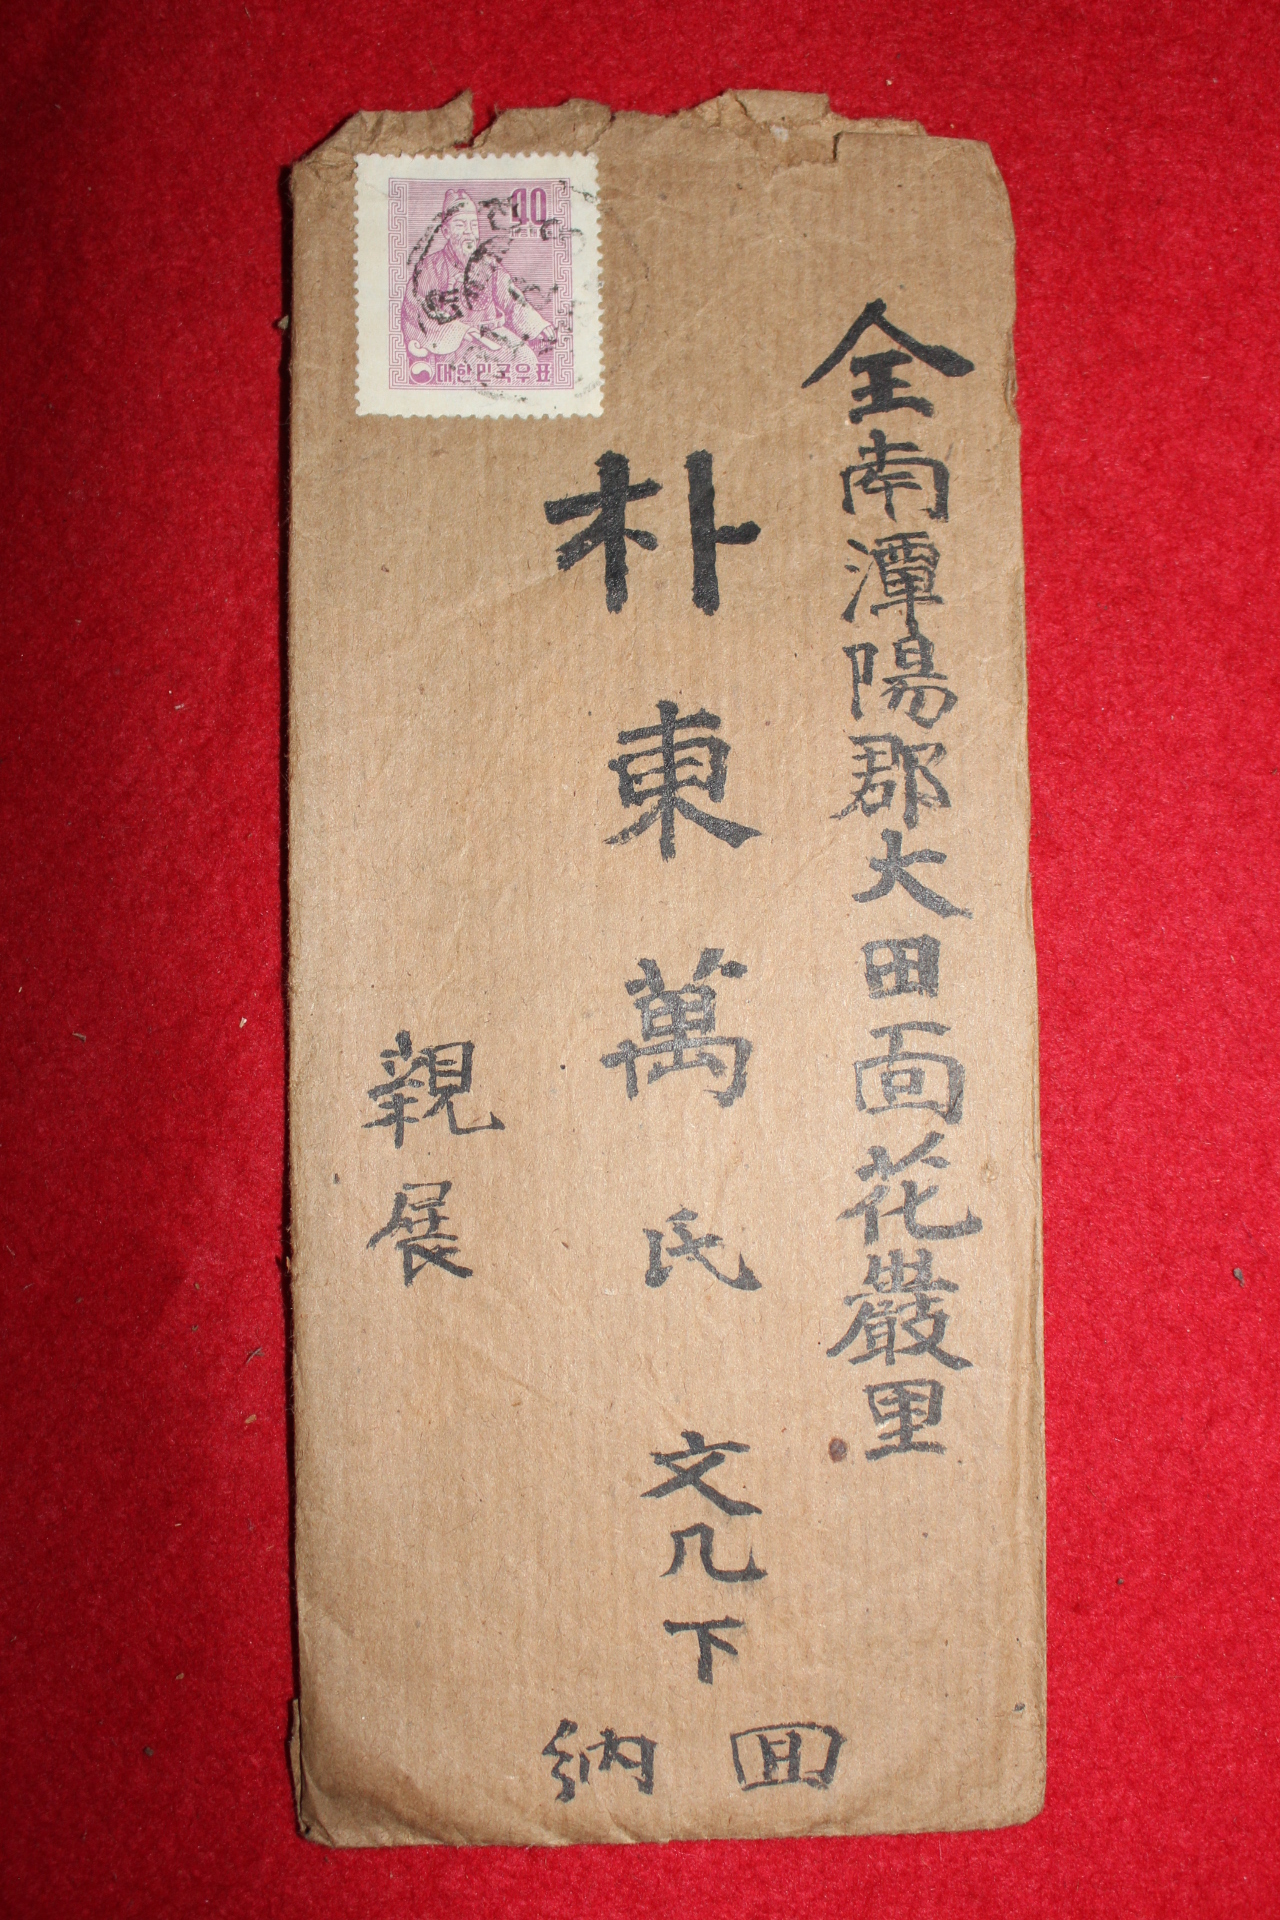 全南潭陽郡大田面花巖里
朴東萬氏 文几下
回納
親展
40
대한민국우표